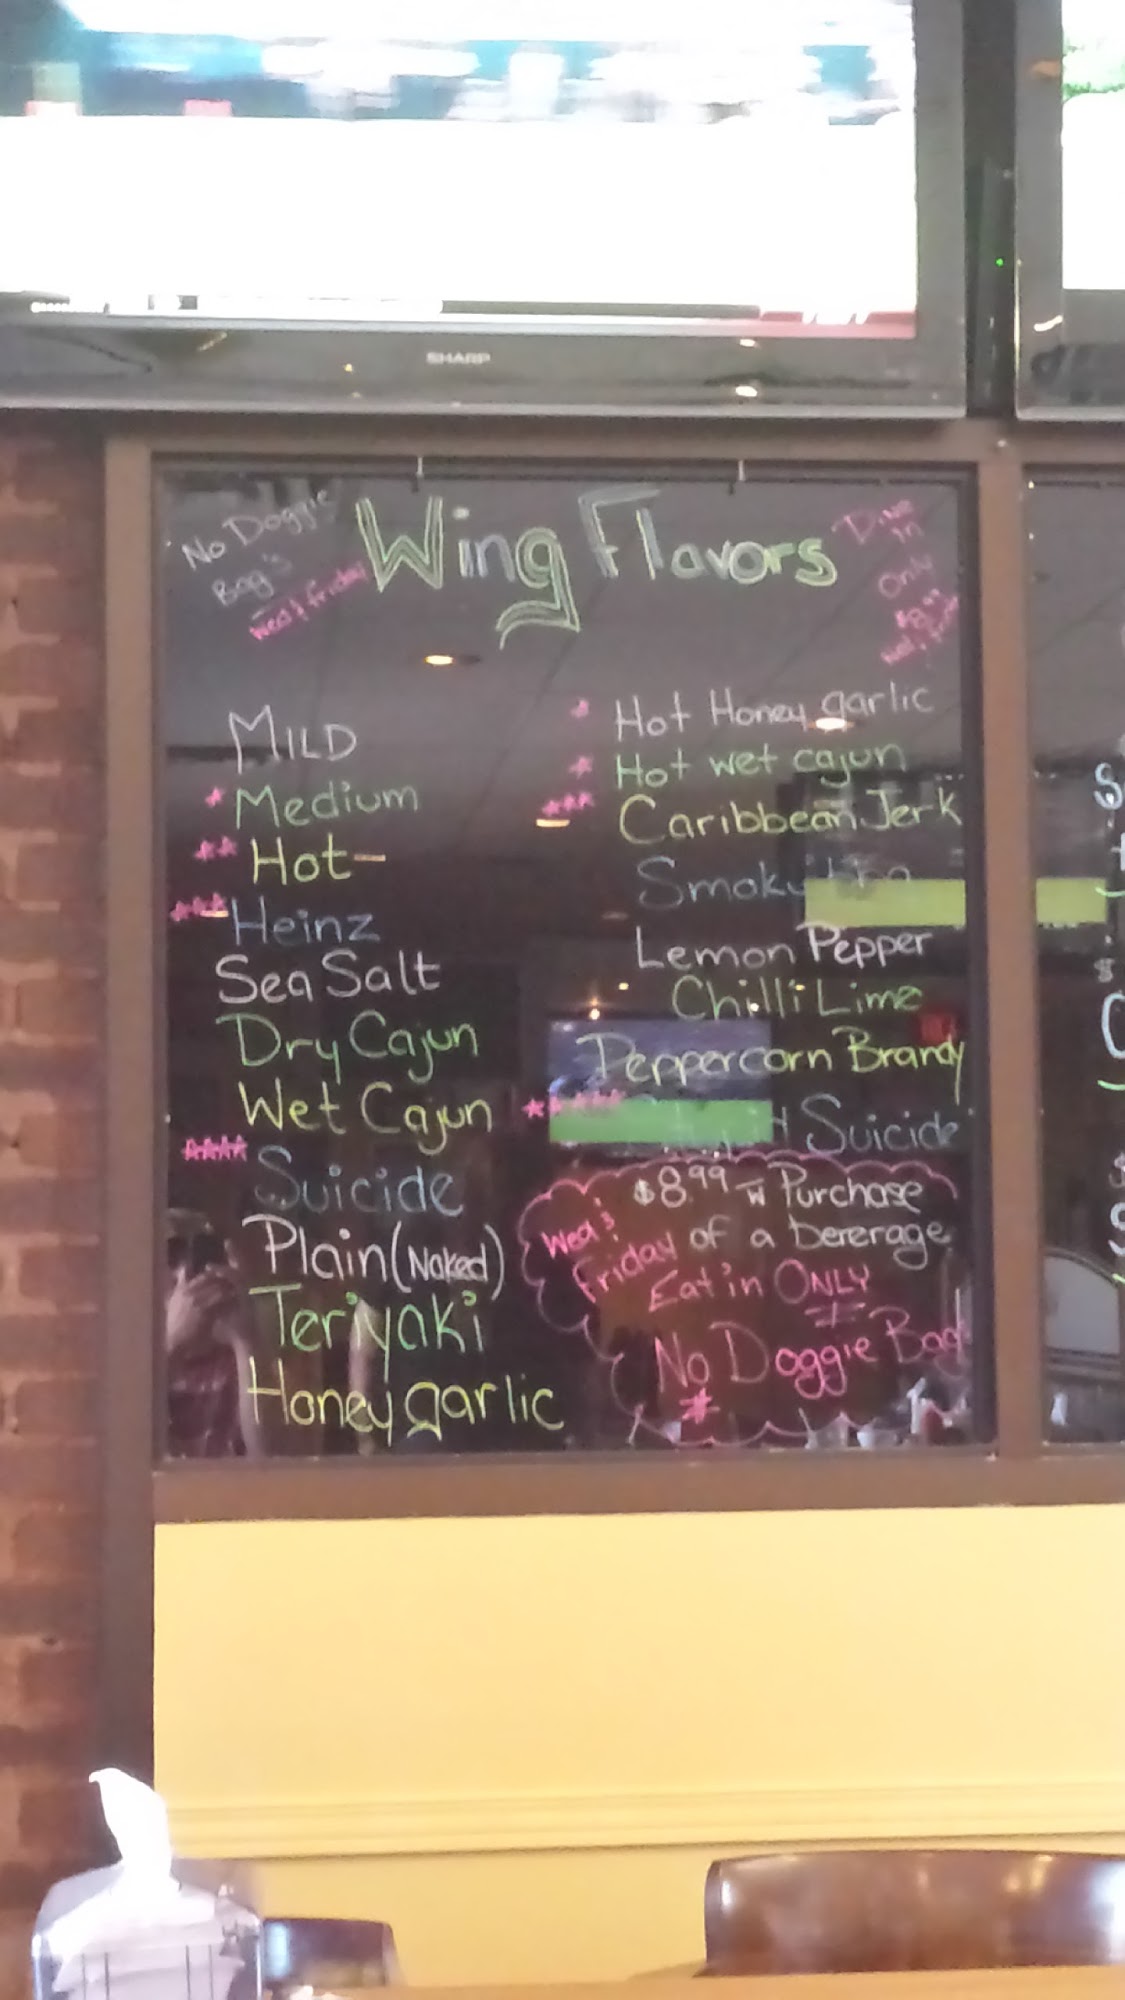 SHARP
No Doggie
Bag's
Wed & Friday
Wing Flavors
Dine
in
Only
MILD
* Medium
** Hot
*** Heinz
Sea Salt
Dry Cajun
Wet Cajun
**** Suicide
Plain (Naked)
Teriyaki
Honey garlic
* Hot Honey garlic
* Hot wet cajun
*** Caribbean Jerk
Smoky
Lemon Pepper
Chilli Lime
Peppercorn Brandy
Suicide
$8.99 w Purchase
of a bererage
Wed &
Friday
Eat in ONLY
No Doggie Bag